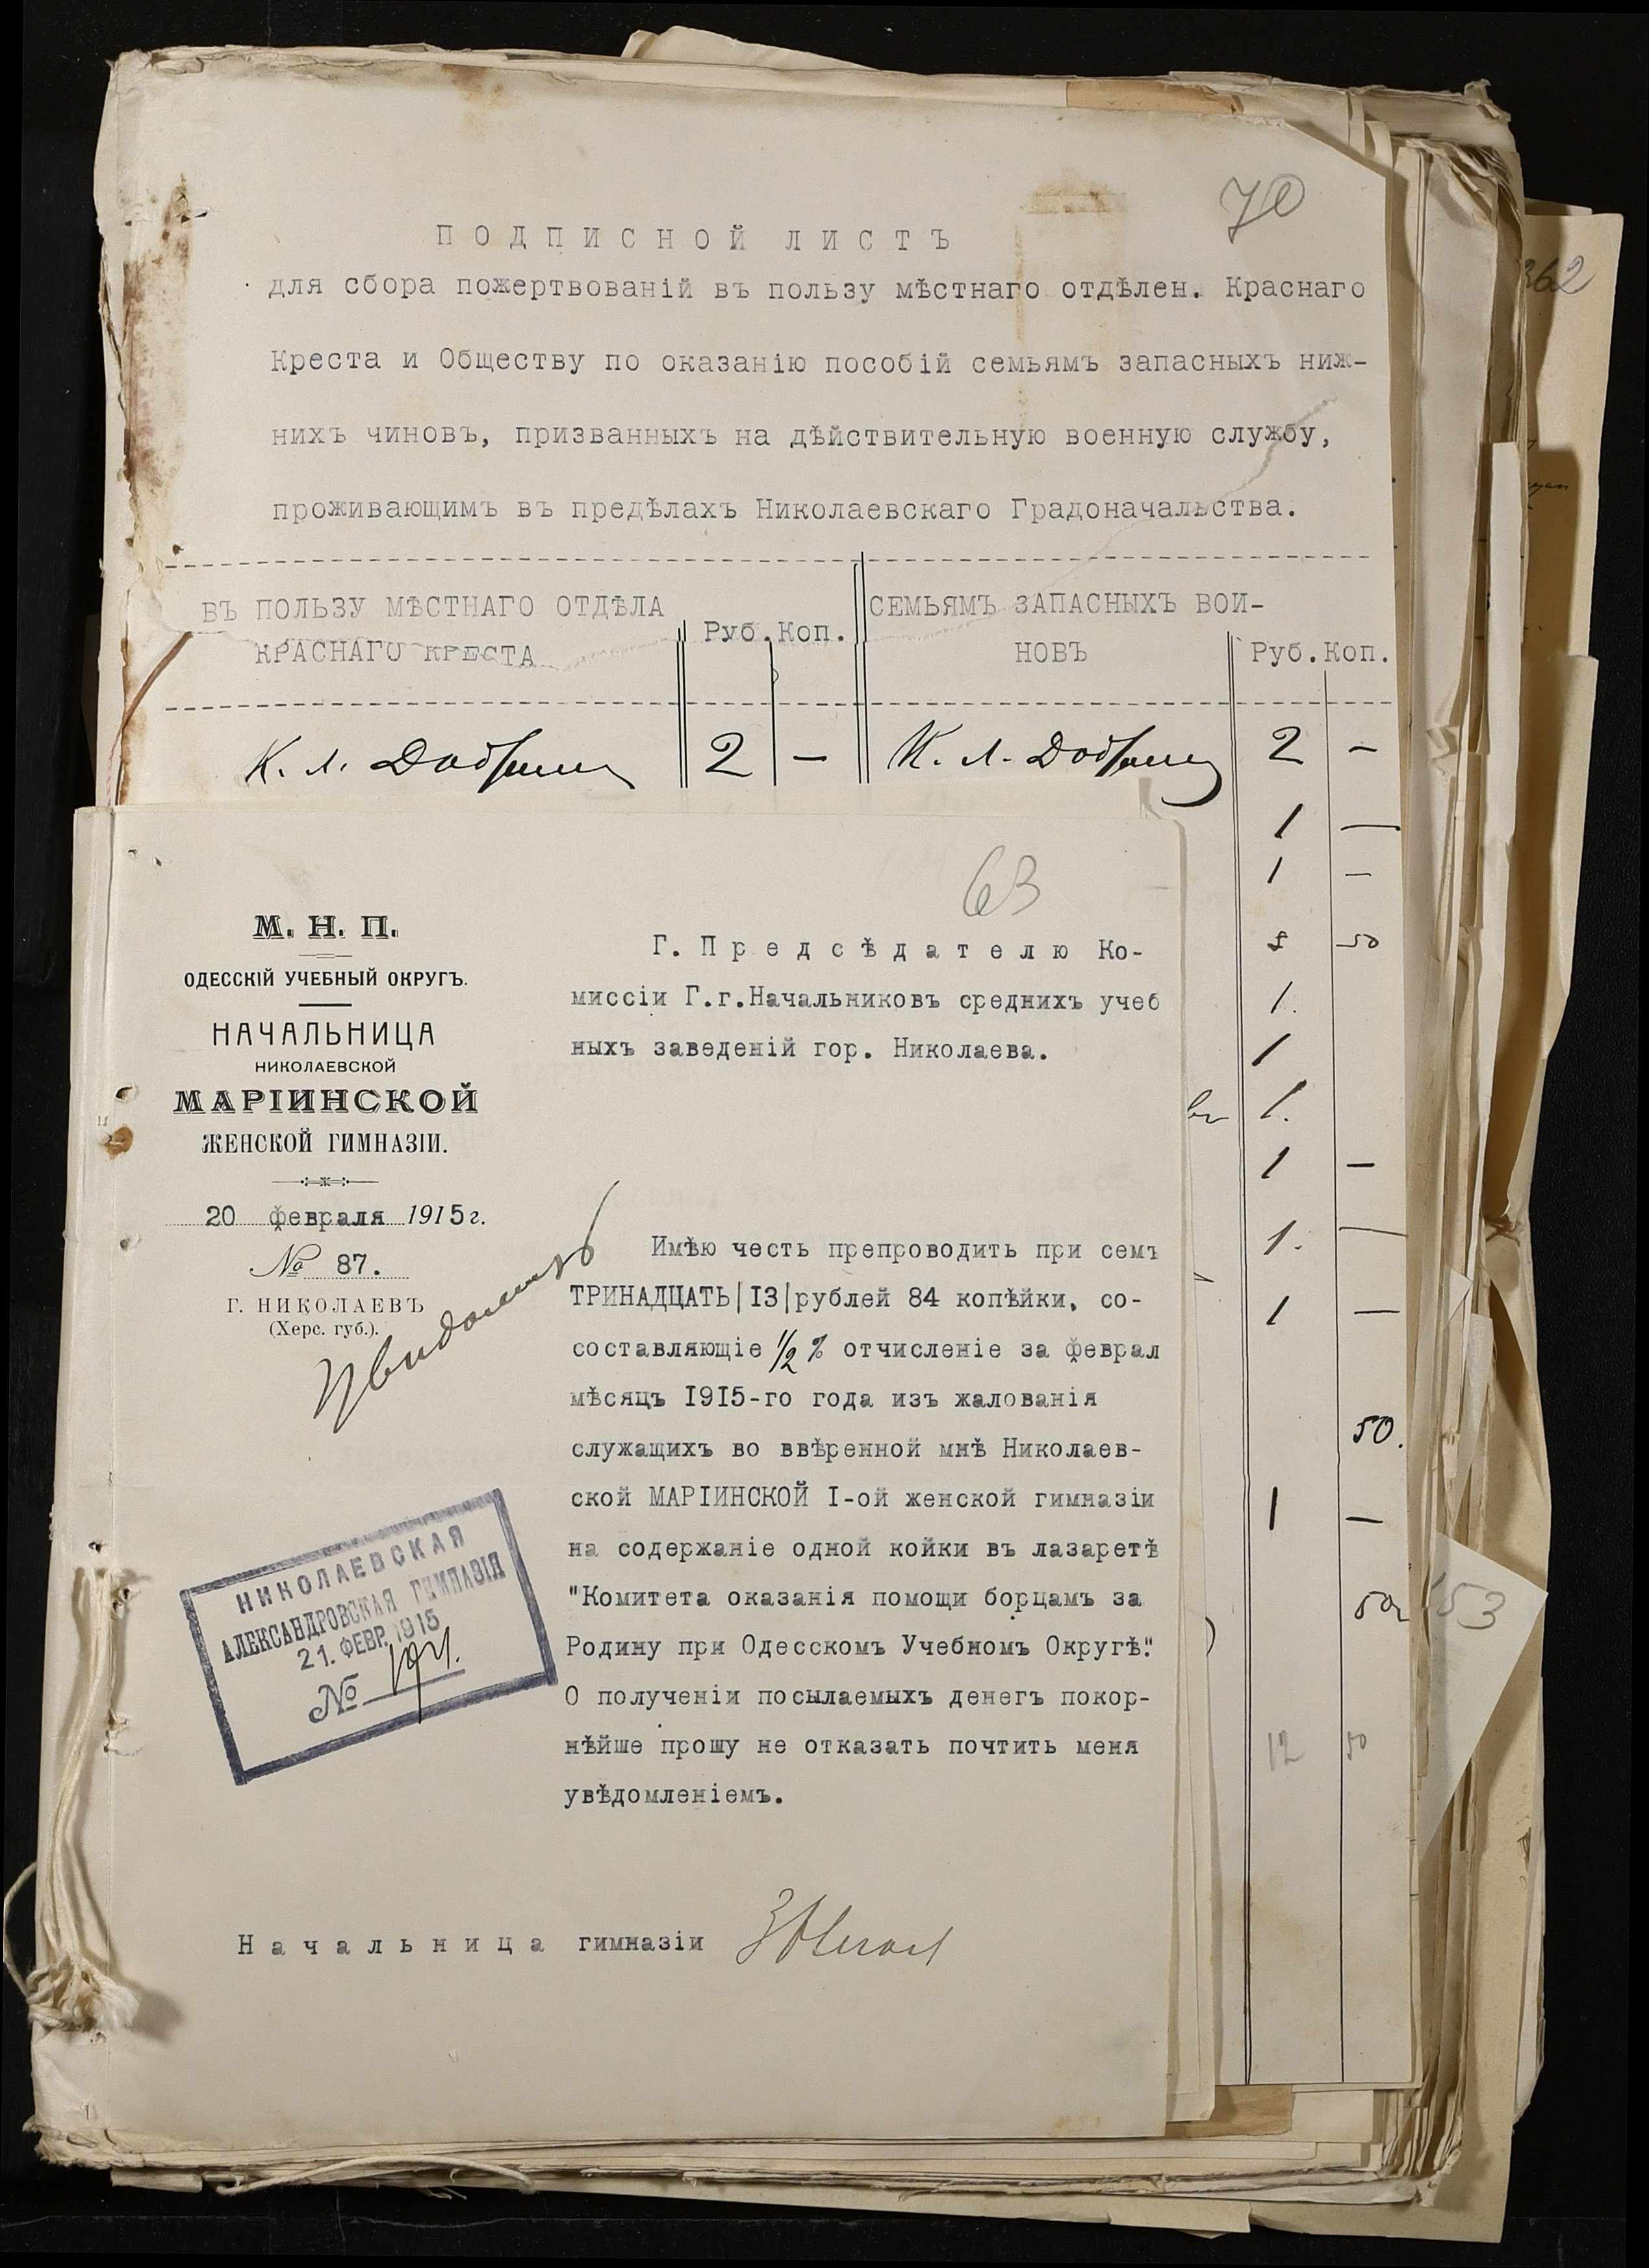 70
ПОДПИСНОЙ ЛИСТЪ
для сбора пожертвованій въ пользу мѣстнаго отдѣлен. Краснаго
Креста и Обществу по оказанію пособій семьямъ запасныхъ ниж-
нихъ чиновъ, призванныхъ на дѣйствительную военную службу,
проживающимъ въ предѣлахъ Николаевскаго Градоначальства.
ВЪ ПОЛЬЗУ МѢСТНАГО ОТДѢЛА
КРАСНАГО КРЕСТА
Руб. Коп.
СЕМЬЯМЪ ЗАПАСНЫХЪ ВОИ-
НОВЪ
Руб. Коп.
К. Л. 2 — К. Л. 2 —
1 —
1 —
50
1.
1
1.
1 —
1. —
1 —
50.
1 —
50
12 50
362
153
63
М. Н. П.
ОДЕССКІЙ УЧЕБНЫЙ ОКРУГЪ.
НАЧАЛЬНИЦА
НИКОЛАЕВСКОЙ
МАРІИНСКОЙ
ЖЕНСКОЙ ГИМНАЗІИ.
20 февраля 1915 г.
№ 87.
Г. НИКОЛАЕВЪ
(Херс. губ.).
Г. Предсѣдателю Ко-
миссіи Г.г.Начальниковъ среднихъ учеб
ныхъ заведеній гор. Николаева.
Имѣю честь препроводить при семъ
ТРИНАДЦАТЬ|I3|рублей 84 копѣйки, со-
составляющіе 1/2 % отчисленіе за феврал
мѣсяцъ I9I5-го года изъ жалованія
служащихъ во ввѣренной мнѣ Николаев-
ской МАРІИНСКОЙ I-ой женской гимназіи
на содержаніе одной койки въ лазаретѣ
"Комитета оказанія помощи борцамъ за
Родину при Одесскомъ Учебномъ Округѣ."
О полученіи посылаемыхъ денегъ покор-
нѣйше прошу не отказать почтить меня
увѣдомленіемъ.
НИКОЛАЕВСКАЯ
АЛЕКСАНДРОВСКАЯ ГИМНАЗІЯ
21. ФЕВР. 1915
№
Начальница гимназіи